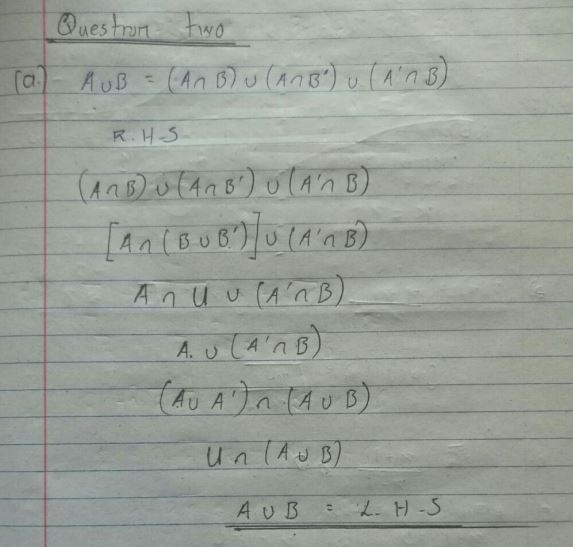 Question two
(a.) A∪B = (A∩B)∪(A∩B')∪(A'∩B)
R.H.S
(A∩B)∪(A∩B')∪(A'∩B)
[A∩(B∪B')]∪(A'∩B)
A∩U∪(A'∩B)
A.∪(A'∩B)
(A∪A')∩(A∪B)
U∩(A∪B)
A∪B = L.H.S